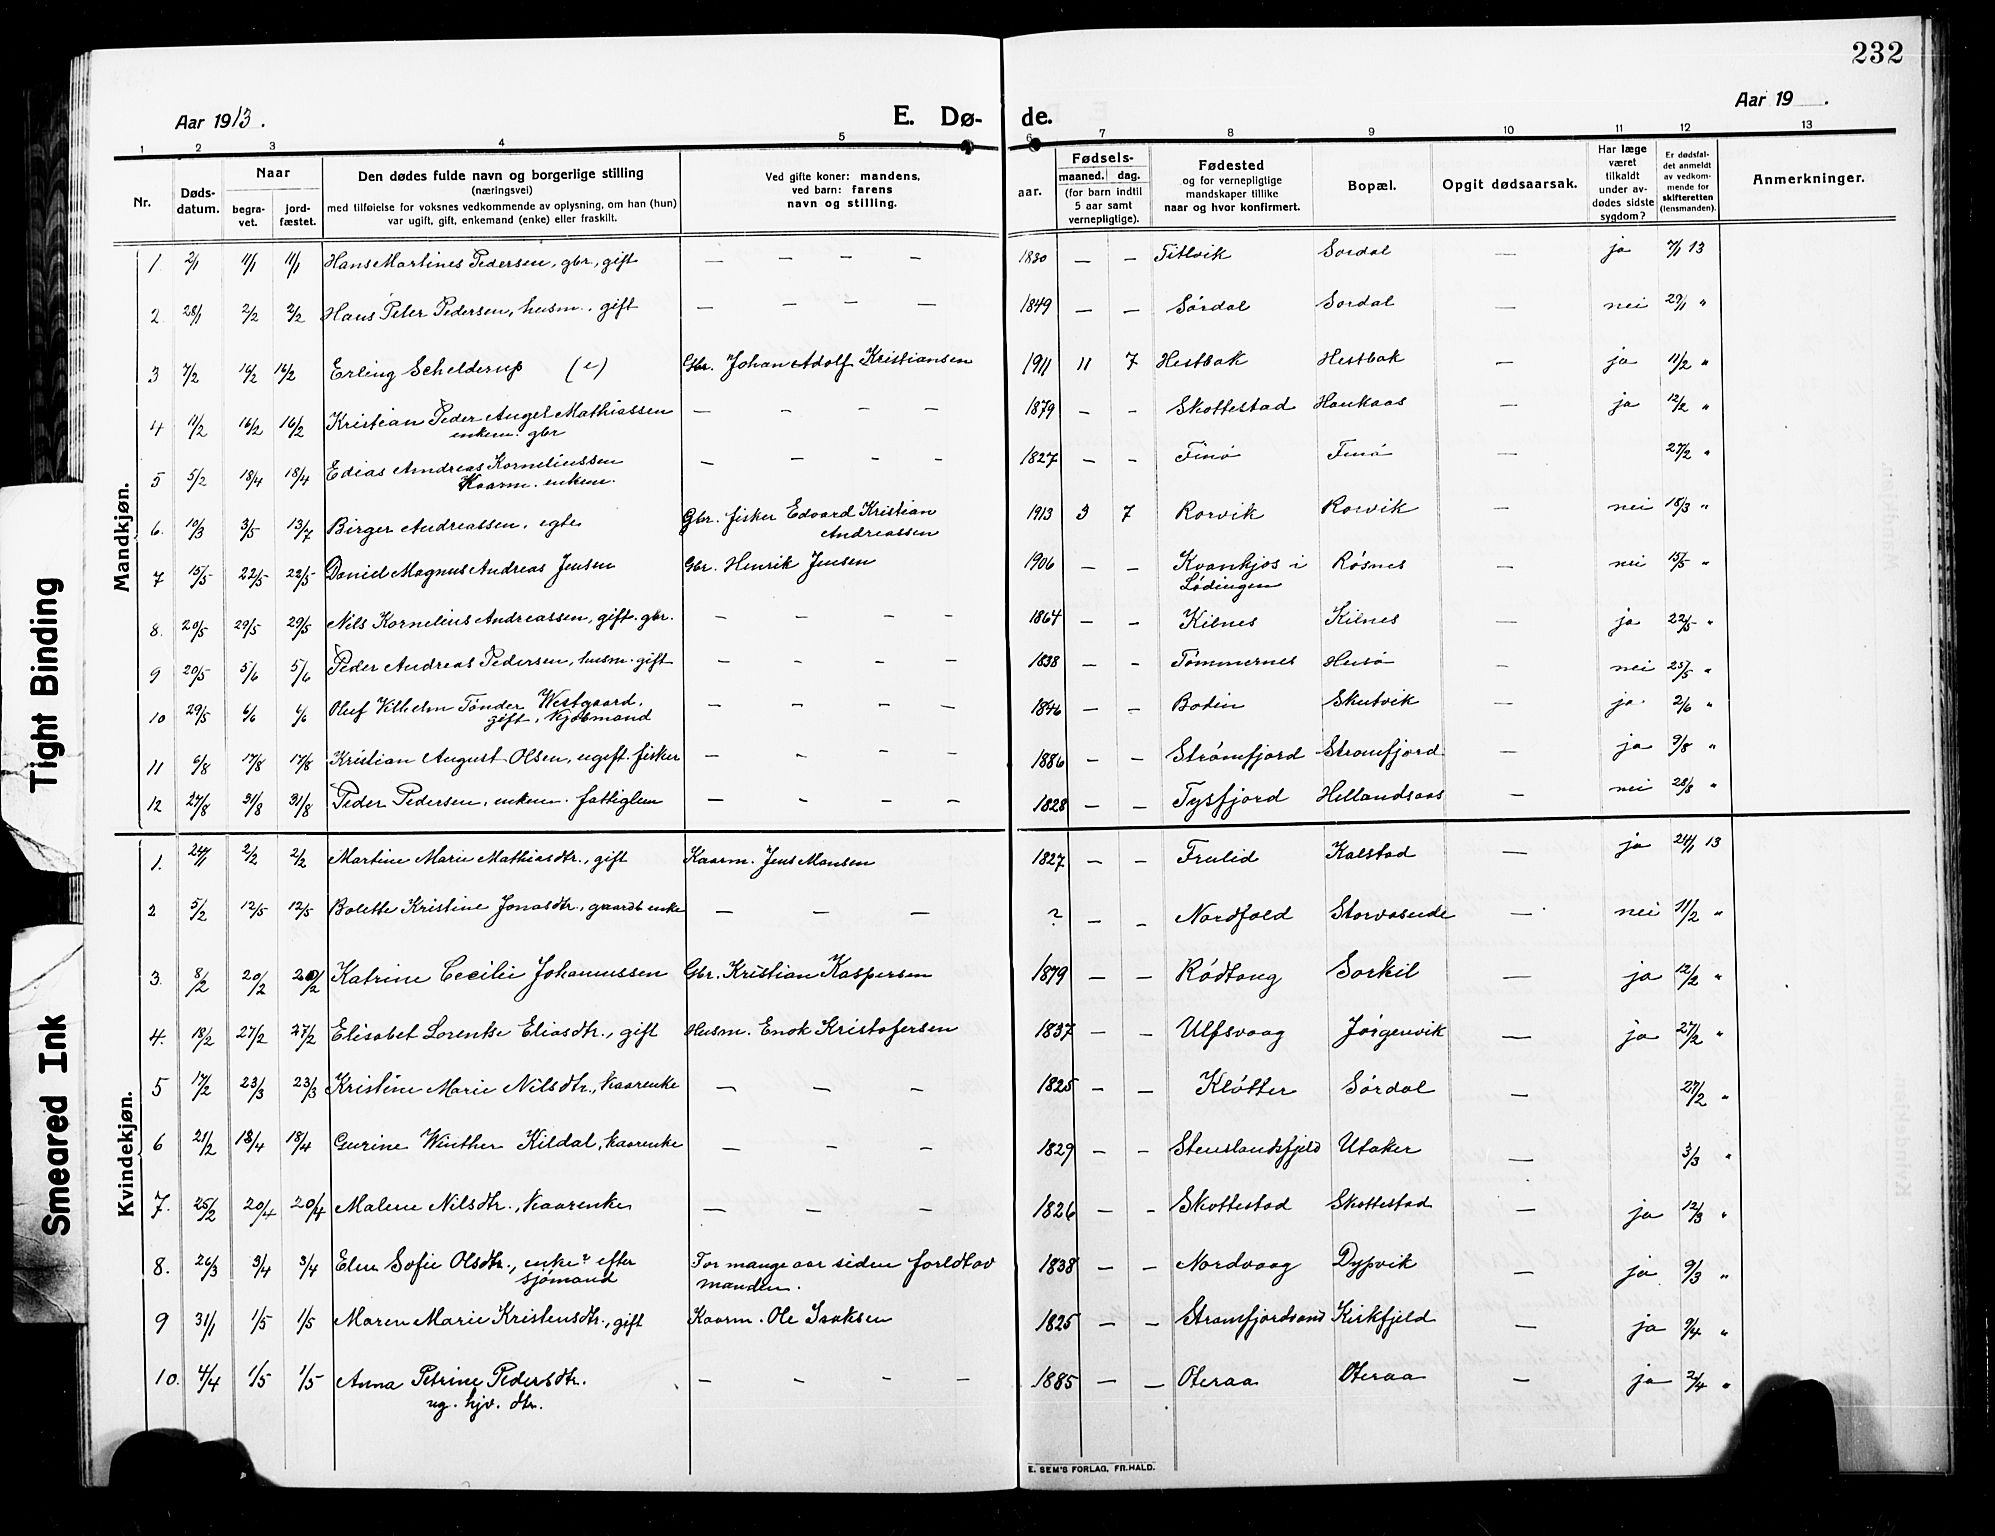 232
Aar 1913.
E. Dø-
de.
Aar 19 .
1 2 3 4 5 6 7 8 9 10 11 12 13
Nr.
Døds-
datum.
Naar
begra-
vet.
jord-
fæstet.
Den dødes fulde navn og borgerlige stilling
(næringsvei)
med tilføielse for voksnes vedkommende av oplysning, om han (hun)
var ugift, gift, enkemand (enke) eller fraskilt.
Ved gifte koner: mandens,
ved barn: farens
navn og stilling.
Fødsels-
aar.
maaned. dag.
(for barn indtil
5 aar samt
vernepligtige).
Fødested
og for vernepligtige
mandskaper tillike
naar og hvor konfirmert.
Bopæl.
Opgit dødsaarsak.
Har læge
været
tilkaldt
under av-
dødes sidste
sygdom?
Er dødsfal-
det anmeldt
av vedkom-
mende for
skifteretten
(lensmanden).
Anmerkninger.
Mandkjøn.
1. 2/1 11/1 11/1 Hans Martines Pedersen, gbr., gift — — — — 1830 — — Titlvik Sordal — ja 7/1 13
2. 28/1 2/2 2/2 Hans Peter Pedersen, husm., gift — — — — 1849 — — Sørdal Sordal — nei 29/1 "
3 7/2 16/2 16/2 Erling Schelderup (e) Gbr. Johan Adolf Kristiansen 1911 11 7 Hestbak Hestbak — ja 11/2 "
4 11/2 16/2 16/2 Kristian Peder Auget Mathiassen — — — — 1879 — — Skottestad Haukaas — ja 12/2 "
enkem. gbr
5 5/2 18/4 18/4 Edias Amdreas Korneliussen — — — — 1827 — — Finø Finø — 27/2 "
Kaarm. enkem.
6. 10/3 3/5 13/7 Birger Andreassen, egte Gbr. fisker Edvard Kristian 1913 3 7 Rorvik Rorvik — nei 18/3 "
Andreassen
7 15/5 22/5 22/5 Daniel Magnus Andreas Jensen Gbr. Henrik Jensen 1906 — — Kvankjos i Røsnes — nei 15/5 "
Lødingen
8. 20/5 29/5 29/5 Nils Kornelius Andreassen, gift. gbr. — — — — 1864 — — Kilnes Kilnes — ja 22/5 "
9 20/5 5/6 5/6 Peder Andreas Pedersen, husm. gift — — — — 1838 — — Tømmernes Husø — nei 25/5 "
10 29/5 6/6 6/6 Oluf Vilhelm Tønder Westgaard, — — — — 1846 — — Bodin Skutvik — ja. 2/6 "
gift, kjøbmand
11 6/8 17/8 17/8 Kristian August Olsen, ugift. fisker — — — — 1886 — — Strømfjord Stromfjord — ja 9/8 "
12 27/8 31/8 31/8 Peder Pedersen, enkem. fattiglem — — — — 1828 — — Tysfjord Hellandsaas — nei 28/8 "
Kvindekjøn.
1. 24/1 2/2 2/2 Martine Marie Mathiasdtr., gift Kaarm. Jens Mansen 1827 — — Frulid Kalstad — ja 24/1 13
2 5/2 12/5 12/5 Bolette Kristine Jonasdtr., gaardb enke — — — ? — — Nordfold Storvaseide — nei 11/2 "
3. 8/2 20/2 20/2 Katrine Cecilie Johannessen Gbr. Kristian Kaspersen 1879 — — Rødtang Sorkil — ja 12/2 "
4. 18/2 27/2 27/2 Elisabet Lorentse Eliasdtr., gift Husm. Enok Kristofersen 1837 — — Ulfsvaag Jørgenvik — ja 27/2 "
5 17/2 23/3 23/3 Kristine Marie Nilsdtr., kaarenke — — — 1825 — — Kløtter Sørdal — 27/2 "
6 21/2 18/4 18/4 Gurine Winther Kildal, kaarenke — — — 1829 — — Stenslandsfjeld Utaker — 3/3 "
7. 25/2 20/4 20/4 Malene Nilsdtr., kaarenke — — — 1826 — — Skottestad Skottestad — ja 12/3 "
8. 26/3 3/4 3/4 Elen Sofie Olsdtr., enke? efter For mange aar siden forldt av 1838 — — Nordvaag Dypvik — ja 9/3 "
sjømand manden.
9 31/1 1/5 1/5 Maren Marie Kristensdtr., gift Kaarm. Ole Isaksen 1825 — — Stromfjordvand Kirkfjeld — ja 9/4 "
10. 4/4 1/5 1/5 Anna Petrine Pedersdtr. — — — — 1885 — — Oteraa Oteraa — ja 2/4 "
ug. hjv. dtr.
E. SEM'S FORLAG, FR.HALD.
Tight Binding
Smeared Ink